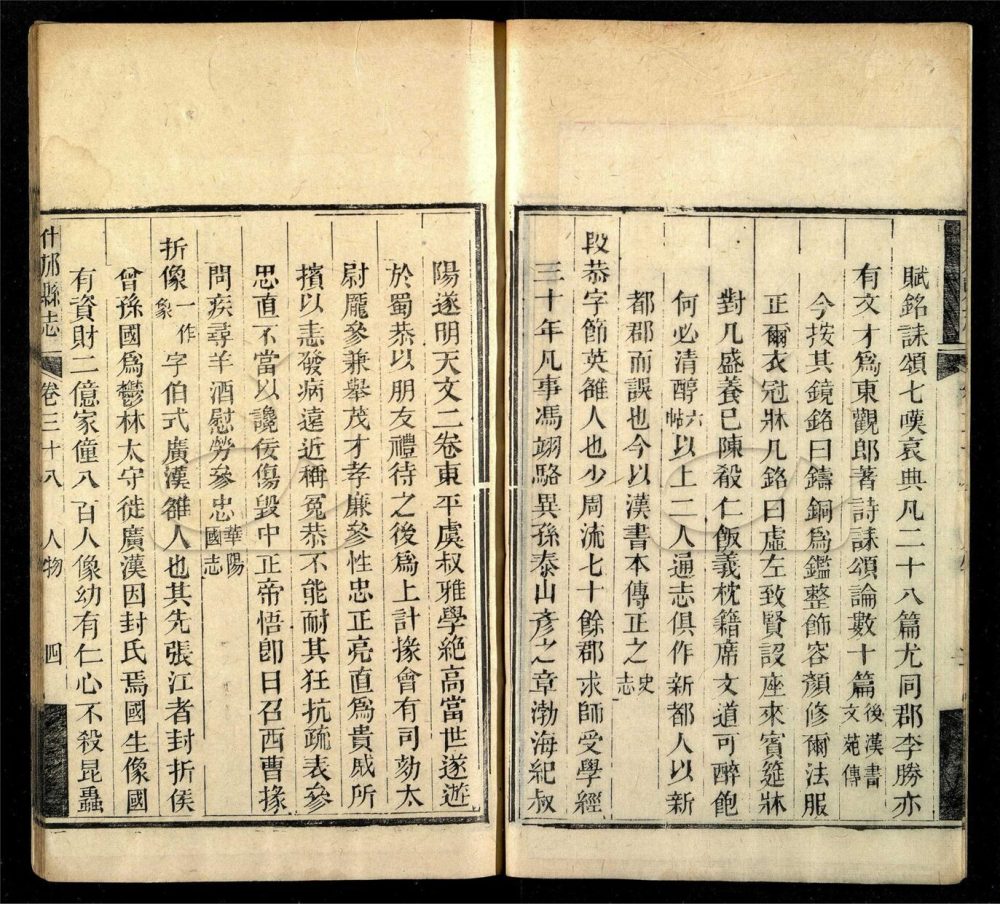 賦銘誄頌七嘆哀典凡二十八篇尤同郡李勝亦
有文才爲東觀郎著詩誄頌論數十篇後漢書文苑傳
今按其鏡銘曰鑄銅爲鑑整飾容顏修爾法服
正爾衣冠牀几銘曰虛左致賢設座來賓筵牀
對几盛養已陳殽仁飯義枕籍席文道可醉飽
何必清醇六帖以上二人通志俱作新都人以新
都郡而誤也今以漢書本傳正之史志
段恭字節英雒人也少周流七十餘郡求師受學經
三十年凡事馮翊駱異孫泰山彥之章渤海紀叔
陽遂明天文二卷東平虞叔雅學絶高當世遂遊
於蜀恭以朋友禮待之後爲上計掾會有司劾太
尉龐參兼舉茂才孝廉參性忠正亮直爲貴戚所
擯以恚發病遠近稱冤恭不能耐其狂抗疏表參
思直不當以讒佞傷毀中正帝悟卽日召西曹掾
問疾尋羊酒慰勞參忠華陽國志
折像一作象字伯式廣漢雒人也其先張江者封折侯
曾孫國爲鬱林太守徙廣漢因封氏焉國生像國
有資財二億家僮八百人像幼有仁心不殺昆蟲
什邡縣志 卷三十八 人物 四